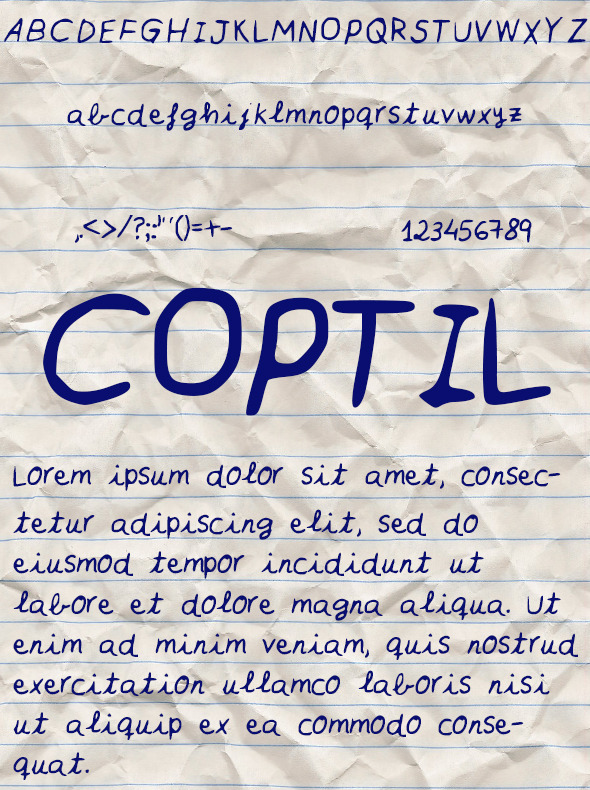 ABCDEFGHIJKLMNOPQRSTUVWXYZ
abcdefghijklmnopqrstuvwxyz
,.<>/?;:'"'()=+-
123456789
COPTIL
Lorem ipsum dolor sit amet, consec-
tetur adipiscing elit, sed do
eiusmod tempor incididunt ut
labore et dolore magna aliqua. Ut
enim ad minim veniam, quis nostrud
exercitation ullamco laboris nisi
ut aliquip ex ea commodo conse-
quat.